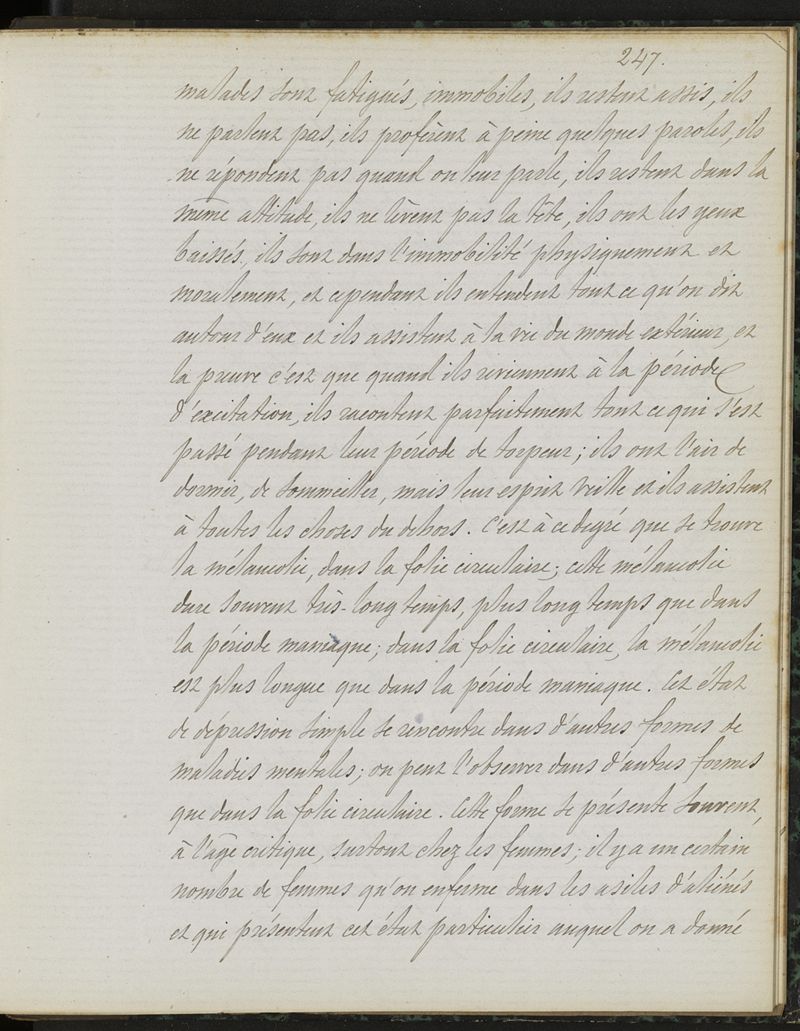 247.
malades sont fatigués, immobiles, ils restent assis, ils
ne parlent pas, ils profèrent à peine quelques paroles, ils
ne répondent pas quand on leur parle, ils restent dans la
même attitude, ils ne lèvent pas la tête, ils ont les yeux
baissés, ils sont dans l'immobilité physiquement et
moralement, et cependant ils entendent tout ce qu'on dit
autour d'eux et ils assistent à la vie du monde extérieur, et
la preuve c'est que quand ils reviennent à la période
d'excitation, ils racontent parfaitement tout ce qui s'est
passé pendant leur période de torpeur; ils ont l'air de
dormir, de sommeiller, mais leur esprit veille et ils assistent
à toutes les choses du dehors. C'est à ce degré que se trouve
la mélancolie, dans la folie circulaire; cette mélancolie
dure souvent très-long temps, plus long temps que dans
la période maniaque; dans la folie circulaire, la mélancolie
est plus longue que dans la période maniaque. Cet état
de dépression simple se rencontre dans d'autres formes de
maladies mentales; on peut l'observer dans d'autres formes
que dans la folie circulaire. Cette forme se présente souvent,
à l'âge critique, surtout chez les femmes; il y a un certain
nombre de femmes qu'on enferme dans les asiles d'aliénés
et qui présentent cet état particulier auquel on a donné